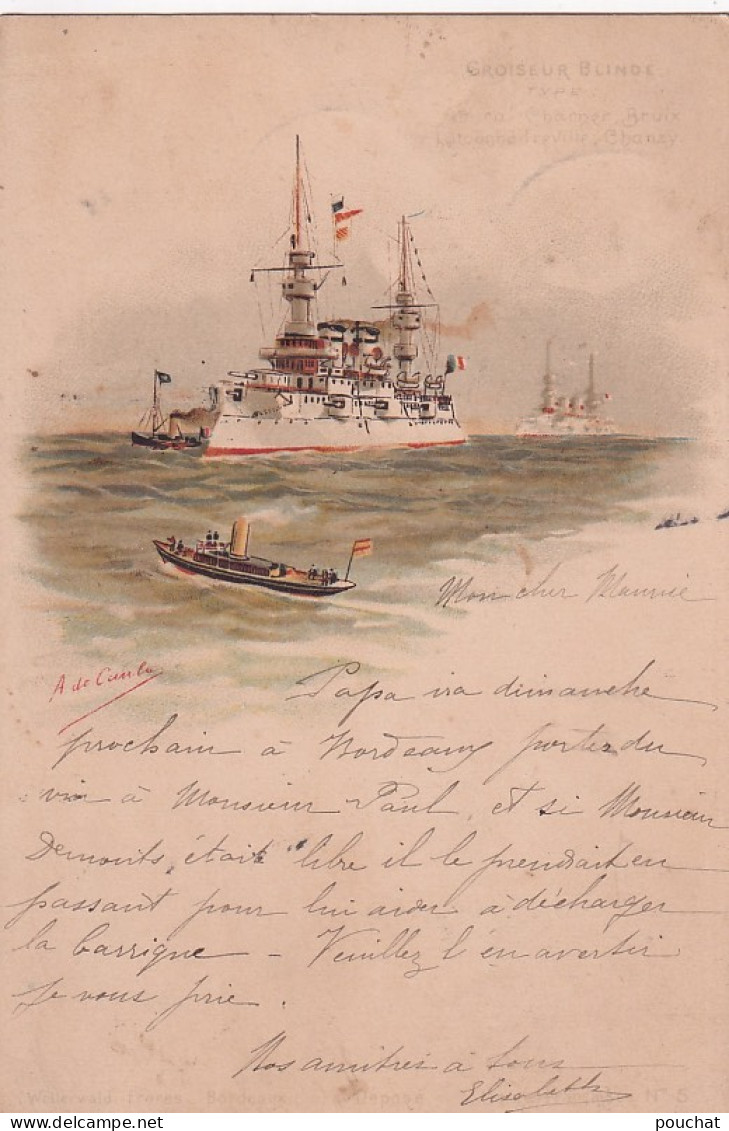 CROISEUR BLINDÉ
TYPE
Charner Bruix
Latouche-Tréville, Chanzy
Mon cher Maurice
A de Caula
Papa ira dimanche
prochain à Bordeaux porter du
vin à Monsieur Paul, et si Monsieur
Demonts était libre il le prendrait en
passant pour lui aider à décharger
la barrique – Veuillez l'en avertir
je vous prie.
Nos amitiés à tous
Elisabeth
Wetterwald Frères, Bordeaux Déposé N° 5
pouchat